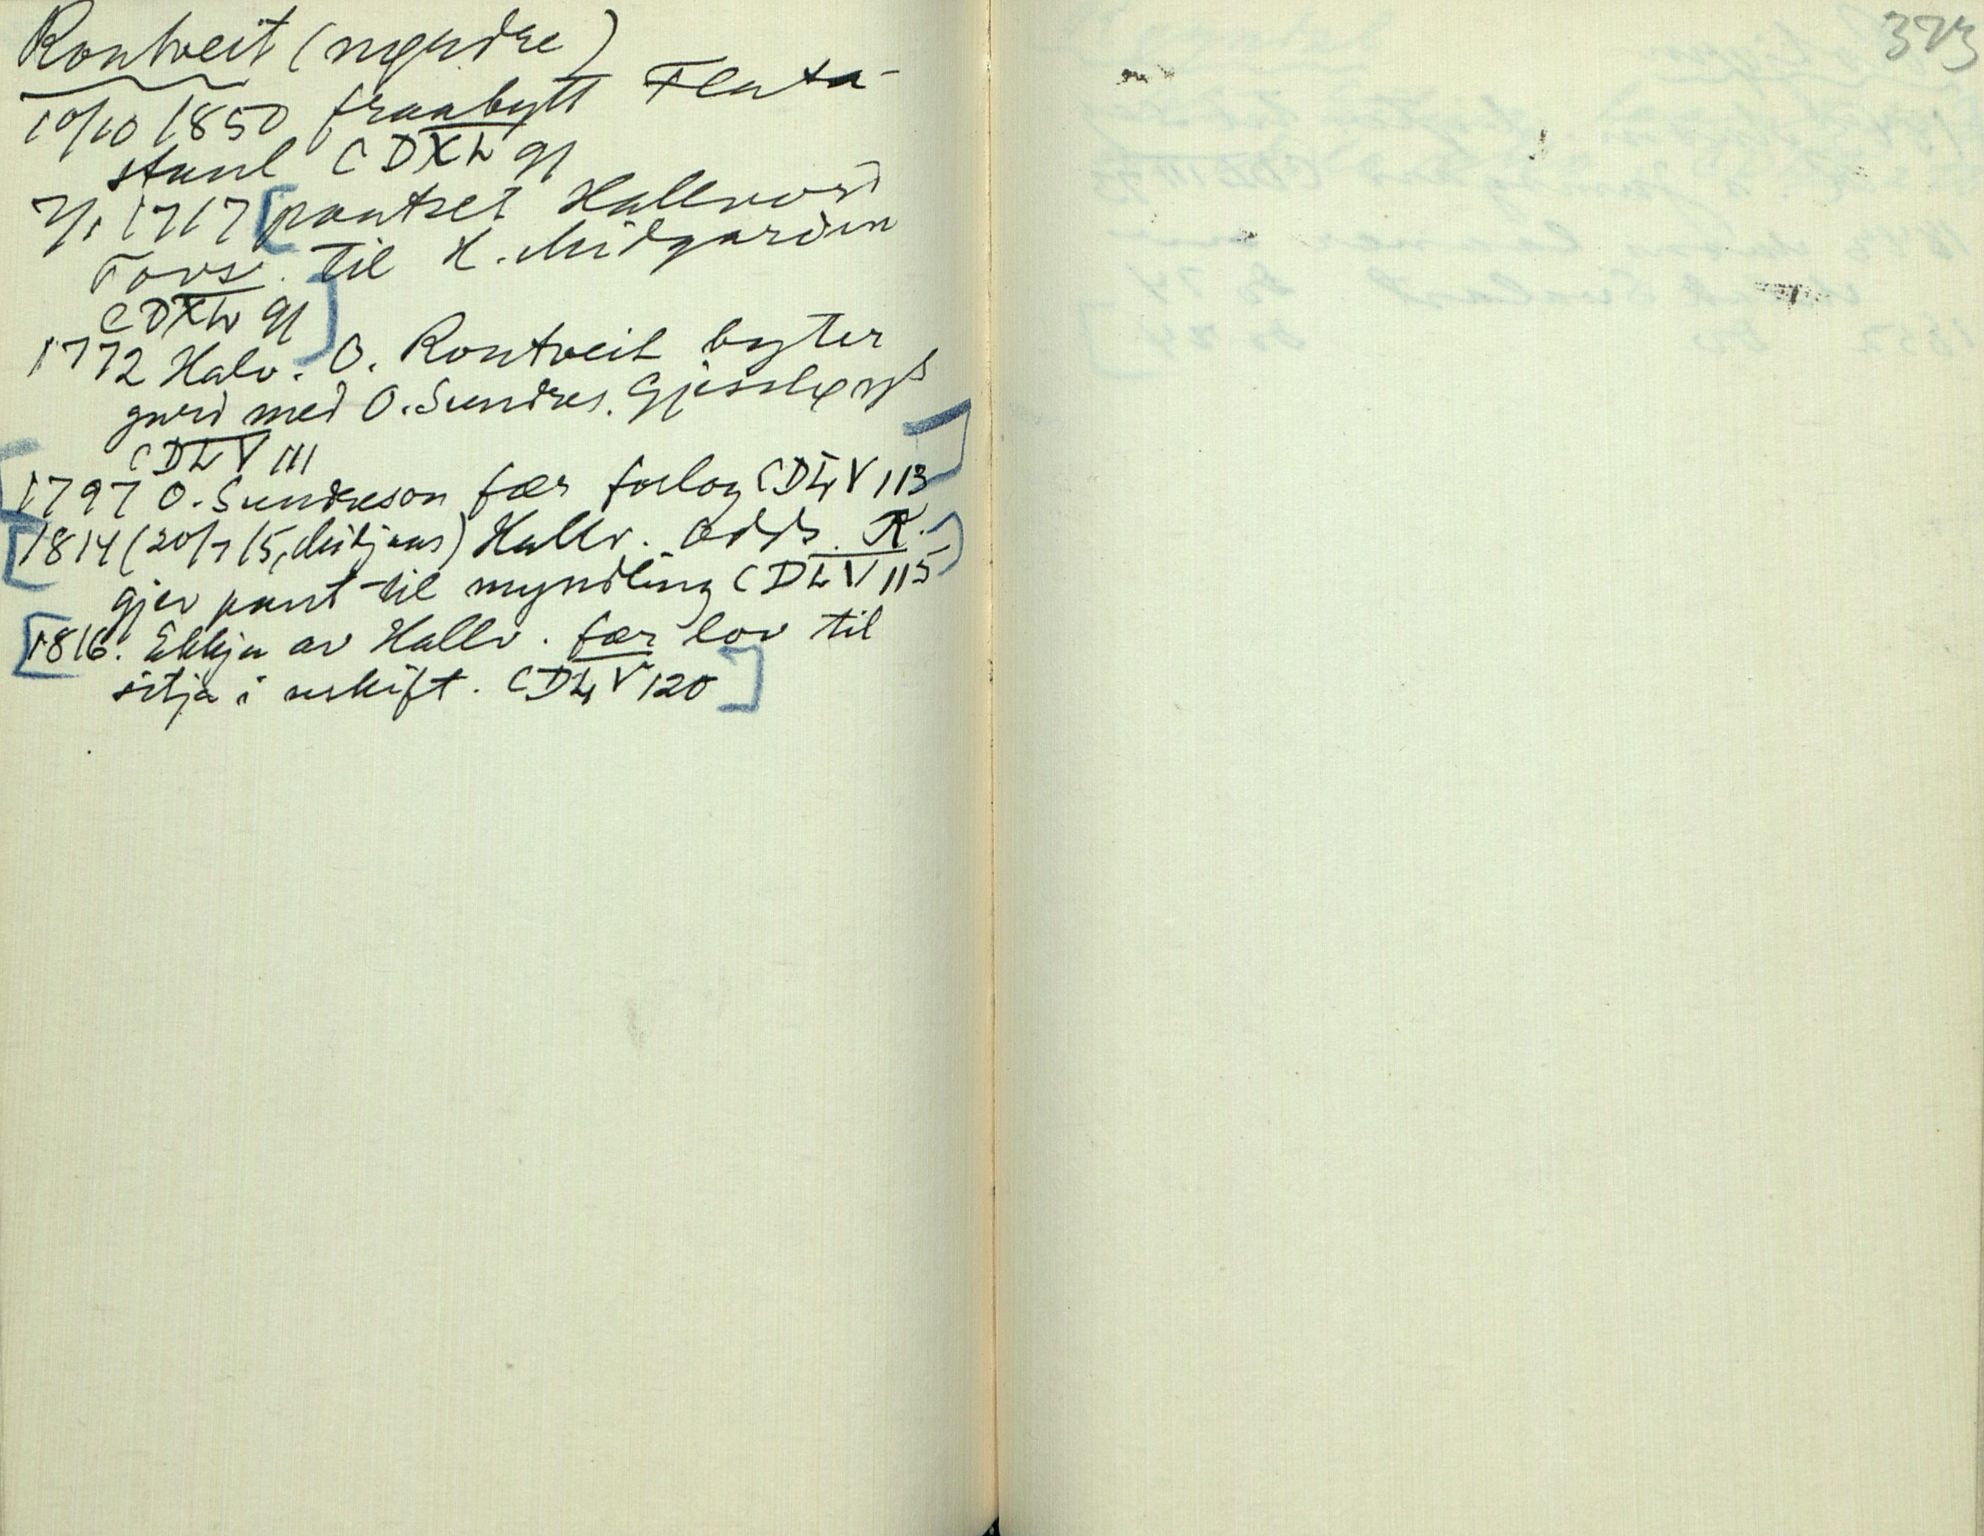 Rontveit (nyrdre)
10/10 1850 fraabytt Flata-
staul CDXL 91
7/1 1717 [pantset Hallvord
Tovs. til H. Midgarden
CDXL 91]
1772 Halv. O. Rontveit byter
gard med O. Sundres. Gjesslegys
CDLV 111
[1797 O. Sundreson fær forlog CDLV 113]
[1814 (20/7 15, Mikjaas) Hallv. Odds. R.
gjev pant til myndling CDLV 115]
[1816. Ekkja av Hallv. fær lov til
sitja i uskift. CDLV 120]
373